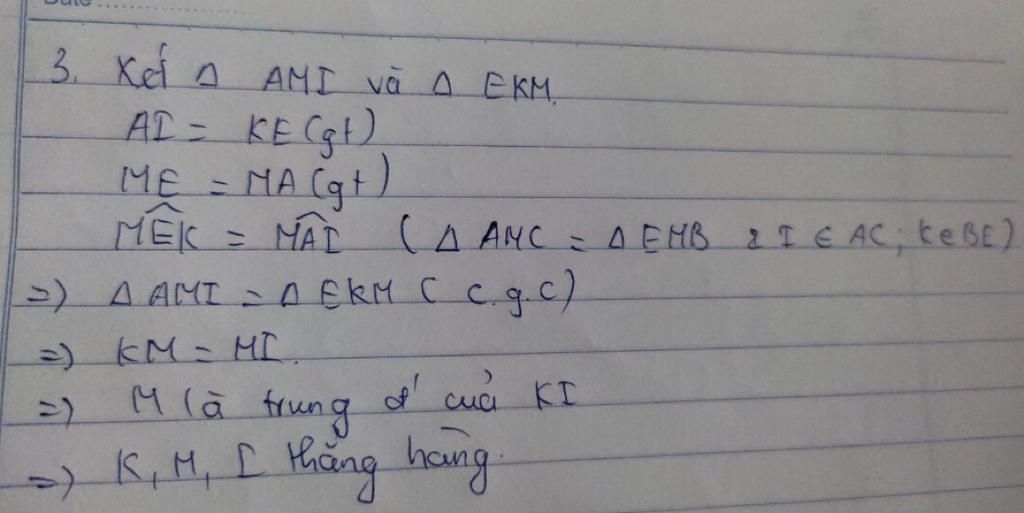 Date
3. Xét Δ AMI và Δ EKM.
AI = KE (gt)
ME = MA (gt)
M̂EK = M̂AI ( Δ AMC = Δ EMB & I ∈ AC; K ∈ BE)
=) Δ AMI = Δ EKM ( c.g.c)
=) KM = MI.
=) M là trung đ' của KI
=) K, M, I thẳng hàng.